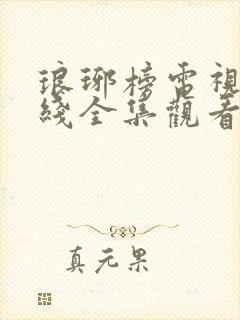 琅琊榜電視
綫全集觀看
真元果